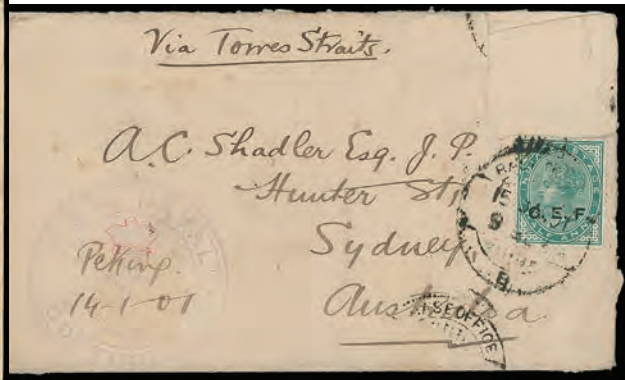 Via Torres Straits.
A.C. Shadler Esq. J. P.
Hunter St,
Sydney
Australia.
Peking.
14-1-01
C. E. F.
B
OFFICE